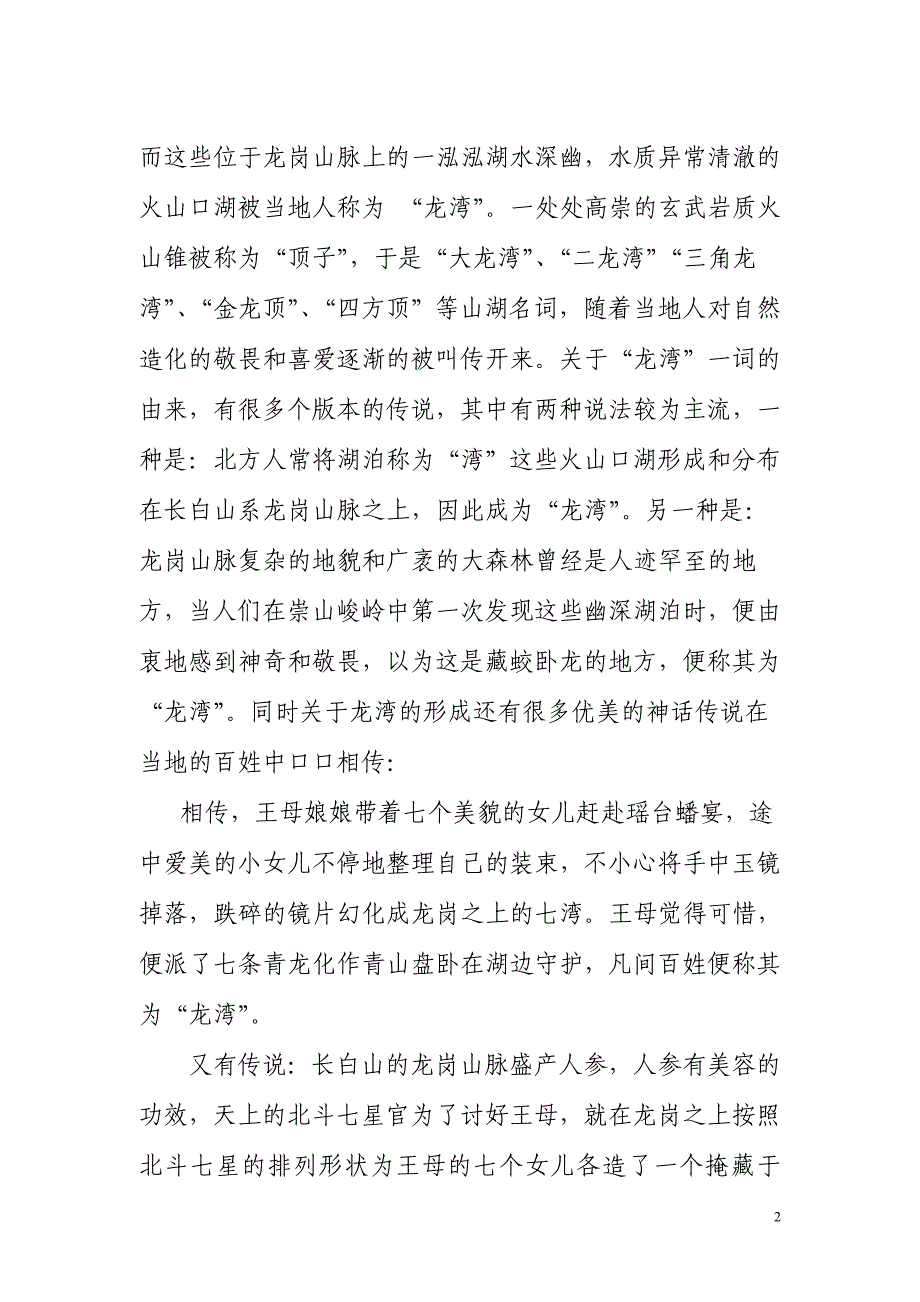 而这些位于龙岗山脉上的一泓泓湖水深幽，水质异常清澈的
火山口湖被当地人称为 “龙湾”。一处处高崇的玄武岩质火
山锥被称为“顶子”，于是“大龙湾”、“二龙湾”“三角龙
湾”、“金龙顶”、“四方顶”等山湖名词，随着当地人对自然
造化的敬畏和喜爱逐渐的被叫传开来。关于“龙湾”一词的
由来，有很多个版本的传说，其中有两种说法较为主流，一
种是：北方人常将湖泊称为“湾”这些火山口湖形成和分布
在长白山系龙岗山脉之上，因此成为“龙湾”。另一种是：
龙岗山脉复杂的地貌和广袤的大森林曾经是人迹罕至的地
方，当人们在崇山峻岭中第一次发现这些幽深湖泊时，便由
衷地感到神奇和敬畏，以为这是藏蛟卧龙的地方，便称其为
“龙湾”。同时关于龙湾的形成还有很多优美的神话传说在
当地的百姓中口口相传：
相传，王母娘娘带着七个美貌的女儿赶赴瑶台蟠宴，途
中爱美的小女儿不停地整理自己的装束，不小心将手中玉镜
掉落，跌碎的镜片幻化成龙岗之上的七湾。王母觉得可惜，
便派了七条青龙化作青山盘卧在湖边守护，凡间百姓便称其
为“龙湾”。
又有传说：长白山的龙岗山脉盛产人参，人参有美容的
功效，天上的北斗七星官为了讨好王母，就在龙岗之上按照
北斗七星的排列形状为王母的七个女儿各造了一个掩藏于
2